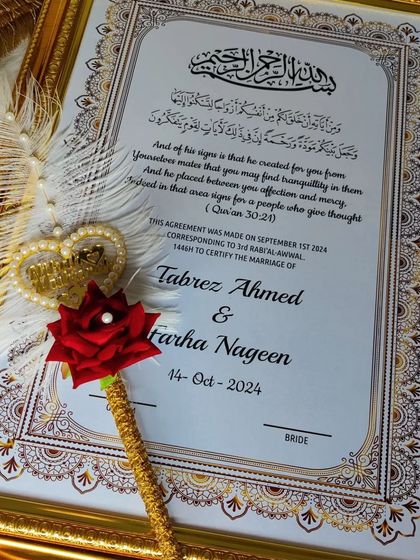 بسم الله الرحمن الرحيم
وَمِنْ آيَاتِهِ أَنْ خَلَقَ لَكُم مِّنْ أَنفُسِكُمْ أَزْوَاجًا لِّتَسْكُنُوا إِلَيْهَا
وَجَعَلَ بَيْنَكُم مَّوَدَّةً وَرَحْمَةً إِنَّ فِي ذَٰلِكَ لَآيَاتٍ لِّقَوْمٍ يَتَفَكَّرُونَ
And of his signs is that he created for you from
Yourselves mates that you may find tranquillity in them
And he placed between you affection and mercy,
Indeed in that area signs for a people who give thought
( Qur'an 30:21)
THIS AGREEMENT WAS MADE ON SEPTEMBER 1ST 2024
CORRESPONDING TO 3rd RABI'AL-AWWAL.
1446H TO CERTIFY THE MARRIAGE OF
Tabrez Ahmed
&
Farha Nageen
14- Oct - 2024
BRIDE